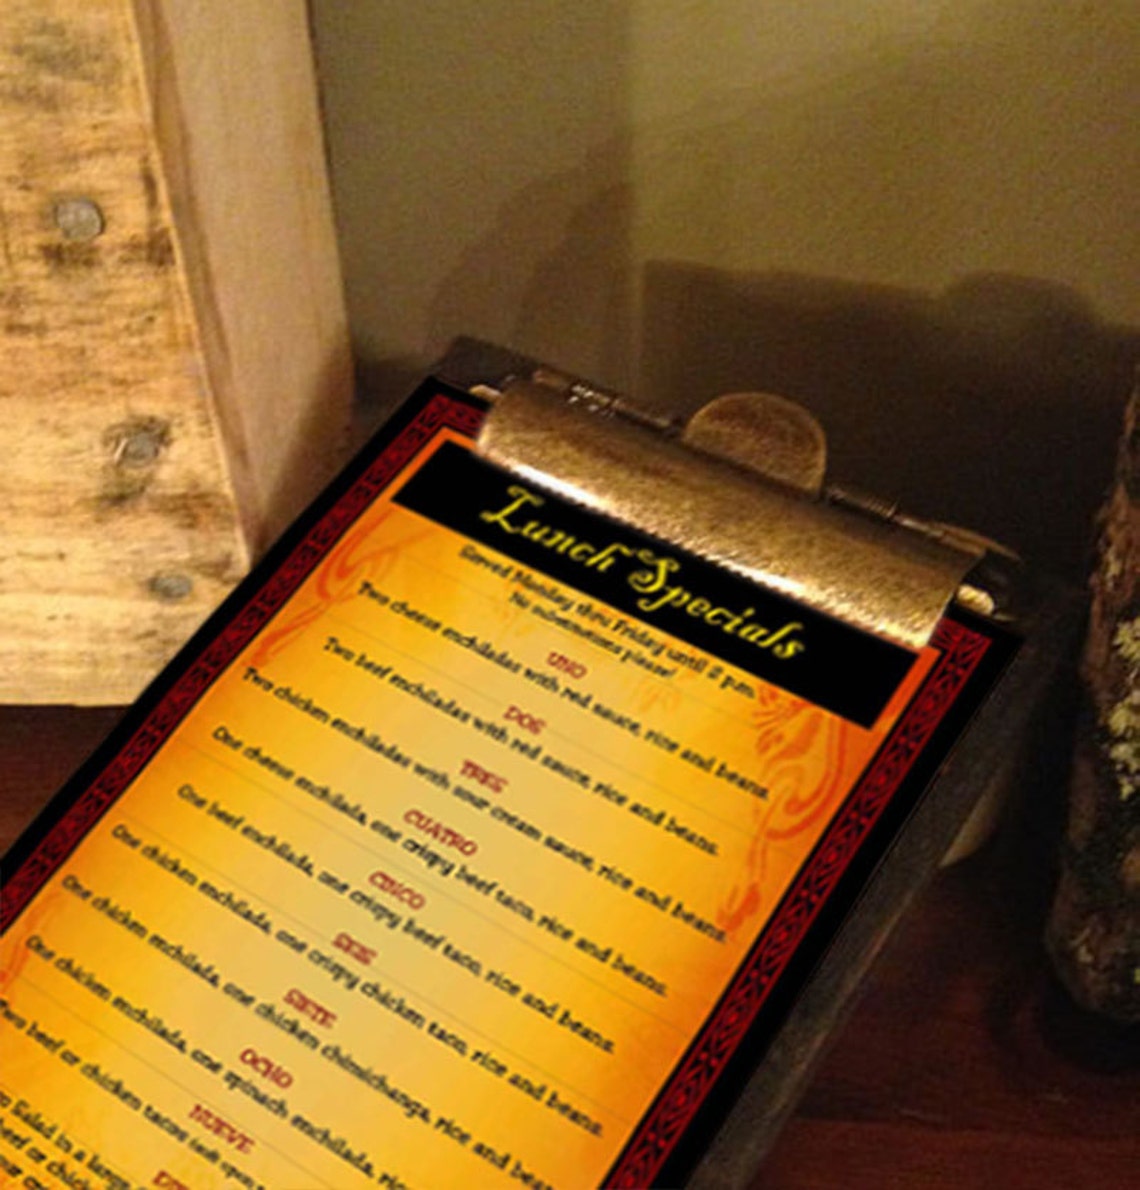 Lunch Specials
Served Monday thru Friday until 2 p.m.
No substitutions please!
UNO
Two cheese enchiladas with red sauce, rice and beans.
DOS
Two beef enchiladas with red sauce, rice and beans.
TRES
Two chicken enchiladas with sour cream sauce, rice and beans.
CUATRO
One cheese enchilada, one crispy beef taco, rice and beans.
CINCO
One beef enchilada, one crispy beef taco, rice and beans.
SEIS
One chicken enchilada, one crispy chicken taco, rice and beans.
SIETE
One chicken enchilada, one chicken chimichanga, rice and bean
OCHO
One chicken enchilada, one spinach enchilada, ric
NUEVE
Two beef or chicken tacos
Salad in a large,
beef or chick